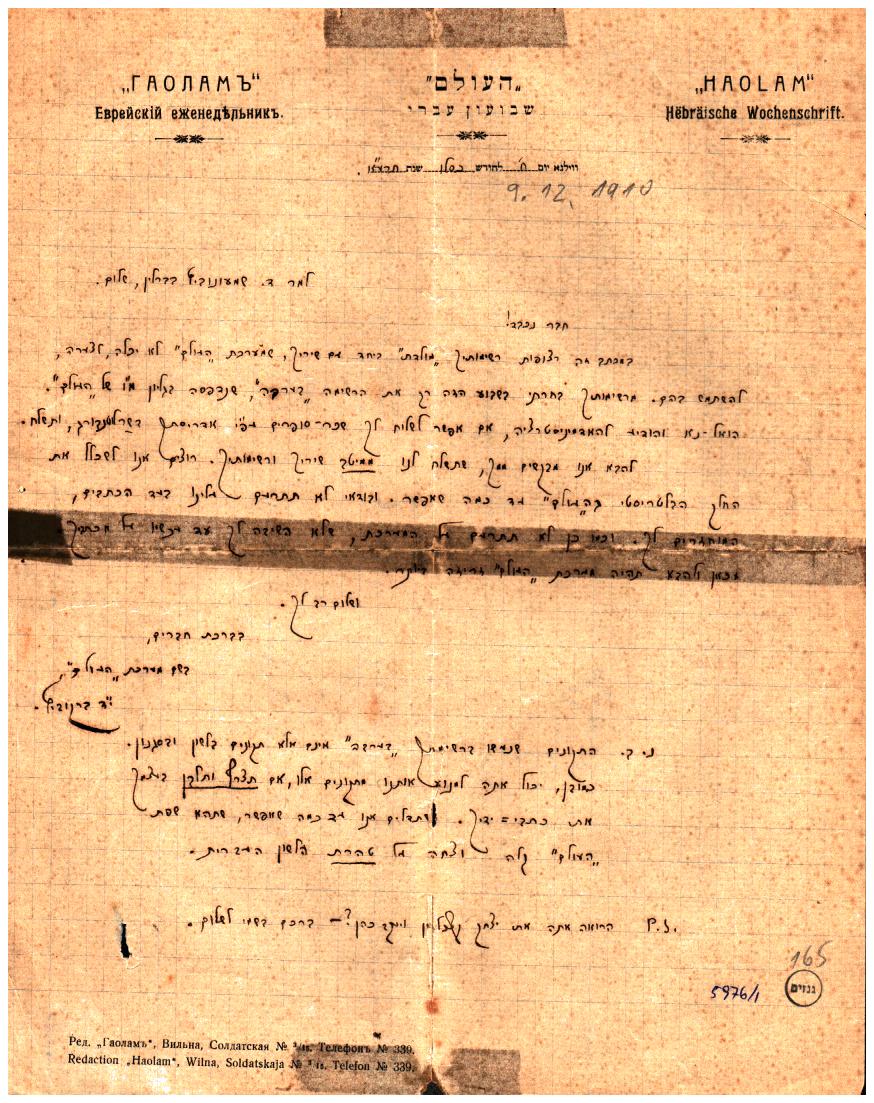 „ГАОЛАМЪ“
Еврейскій еженедѣльникъ.
„העולם”
שבועון עברי
„HAOLAM“
Hebräische Wochenschrift.
ווילנא יום ח' לחודש כסלו שנת תרע"א.
9. 12. 1910
למר ד. שמעונוביץ בברלין, שלום.
חבר נכבד!
במכתב זה רצופות רשימותיך "מולדת" ביחד עם שיריך, שמערכת „העולם" לא יכלה, לצערה,
להשתמש בהם. מרשימותיך בחרתי בשבוע הזה רק את הרשימה „בערבה", שנדפסה בגליון של „העולם".
הואל-נא והודיע להאדמיניסטרציה, אם אפשר לשלוח לך שכר-סופרים עפ"י אדריסתך בשרלוטנבורג, ותשלח.
להבא אנו מבקשים ממך, שתשלח לנו ממיטב שיריך ורשימותיך. רוצים אנו לשכלל את
החלק הבלטריסטי בהעולם" עד כמה שאפשר. ובודאי לא תתרעם עלינו בעד הכתבים,
המוחזרים לך. וכמו כן לא תתרעם על המערכת, שלא השיבה לך עד עכשיו על מכתביך.
מכאן ולהבא תהיה מערכת „העולם" זהירה ביותר.
ושלום רב לך.
בברכת חברים,
בשם מערכת „העולם",
נ. ב. התקונים שנעשו ברשימתך „בערבה" אינם אלא תקונים בלשון ובסגנון.
כמובן, יכול אתה למנוע אותנו מתקונים אלו, אם תצרף ותלבן בעצמך
את כתבי=ידיך. משתדלים אנו עד כמה שאפשר, שתהא שפת
„העולם" קלה וצחה על טהרת הלשון העברית.
P.S. הרואה אתה את יצחק קצנלסון ויעקב כהן? – ברכם בשמי לשלום.
165
5976/1
גנזים
Ред. „Гаоламъ“, Вильна, Солдатская № Телефонъ № 339.
Redaction „Haolam“, Wilna, Soldatskaja № Telefon № 339.